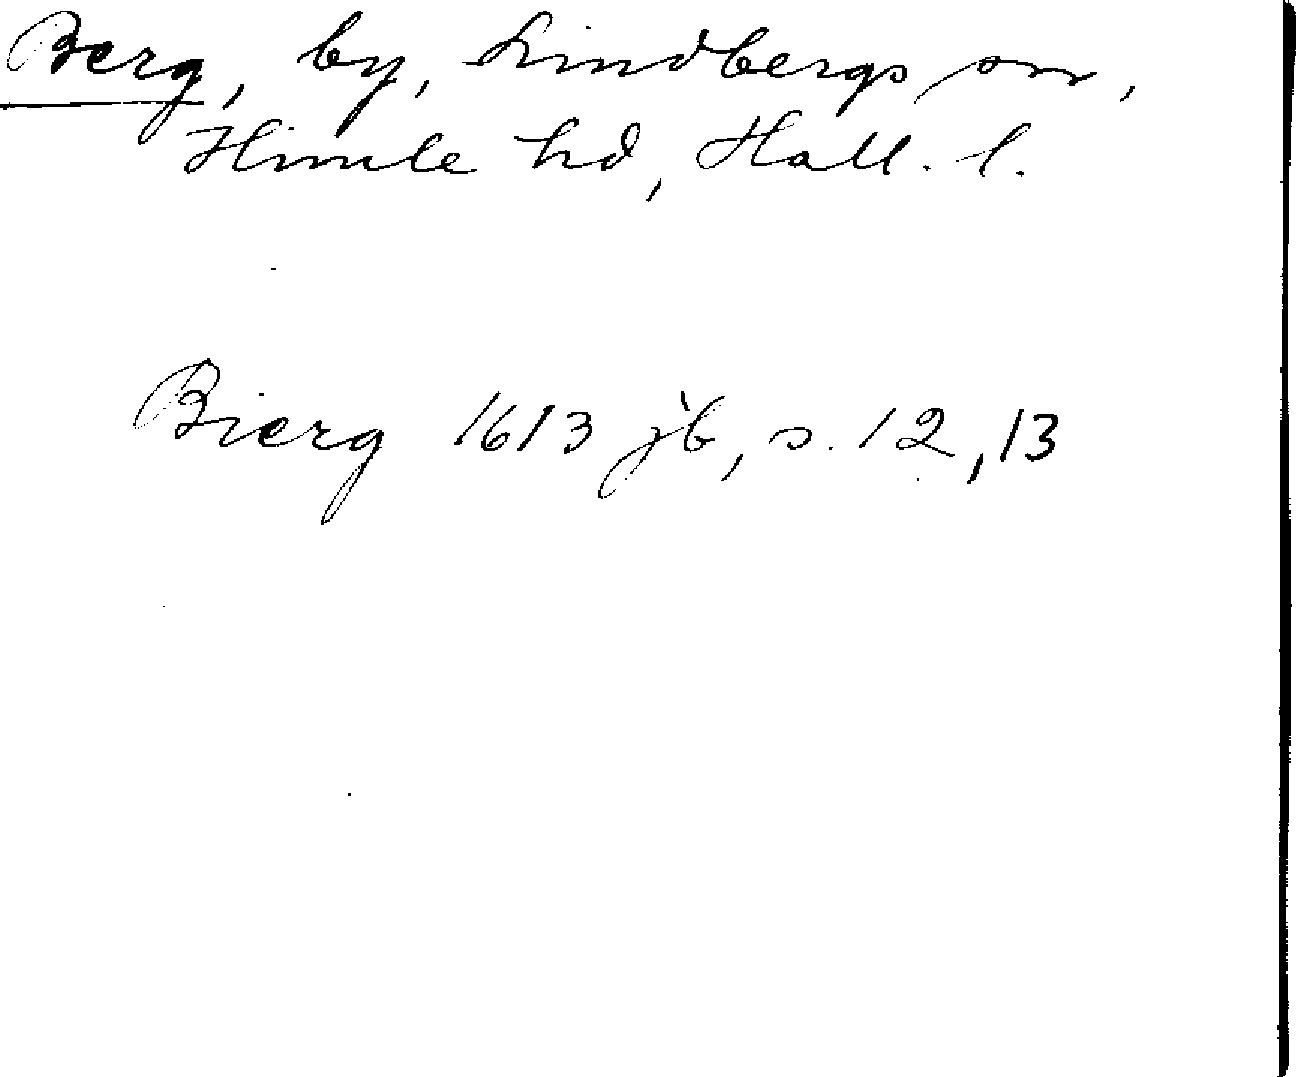 Berg, by, Lindbergs sn,
Himle hd, Hall. l.
Bierg 1613 jb, s. 12, 13